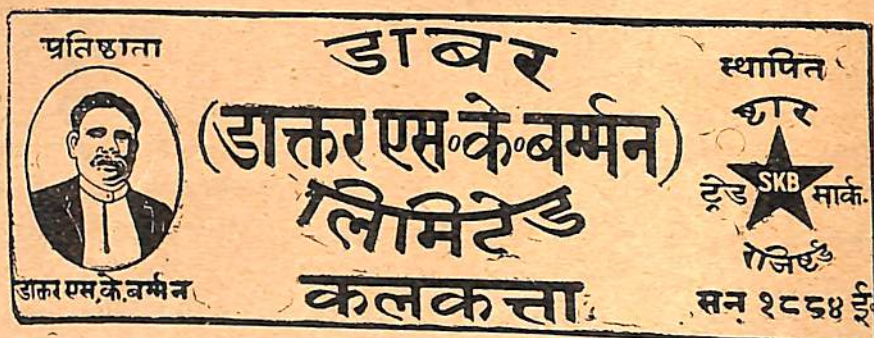 प्रतिष्ठाता
डाक्तर एस.के.बर्म्मन
डाबर
(डाक्तर एस॰के॰बर्म्मन)
लिमिटेड
कलकत्ता
स्थापित
ष्टार
SKB
ट्रेड मार्क.
रजिष्टर्ड
सन १८८४ ई॰